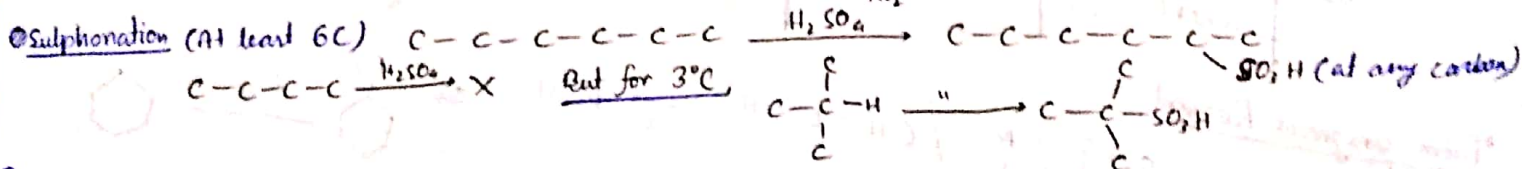 Sulphonation (At least 6C) C-C-C-C-C-C H₂SO₄ → C-C-C-C-C-C SO₃H (at any carbon)
C-C-C-C H₂SO₄ → X But for 3°C, C-C-H " → C-C-SO₃H
C C C C